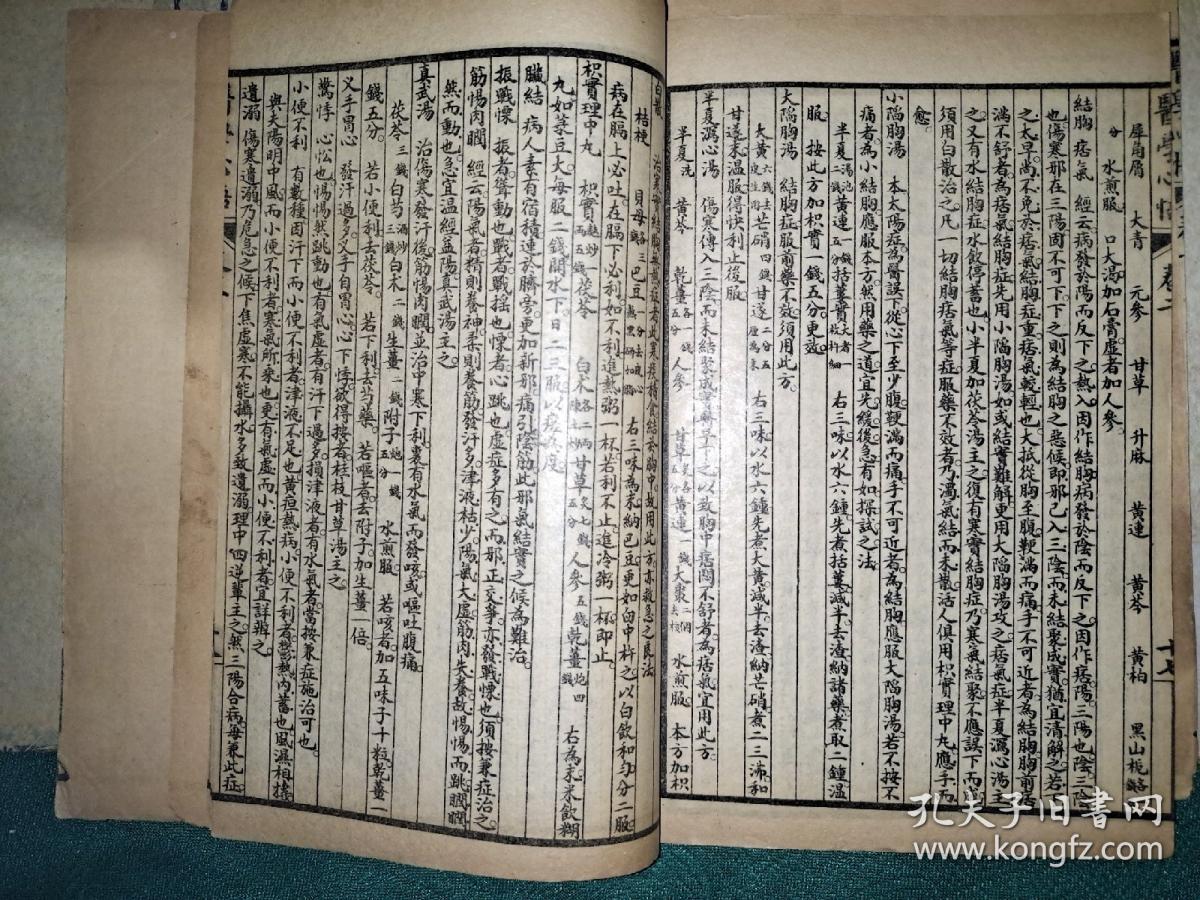 醫學心悟 卷二 十七
犀角屑 大青 元參 甘草 升麻 黃連 黃芩 黃柏 黑山梔各一錢
分 水煎服 口大渴加石膏虛者加人參
結胸痞氣 經云病發於陽而反下之熱入因作結胸病發於陰而反下之因作痞陽三陽也陰三陰
也傷寒邪在三陽因不可下下之則為結胸之惡候即邪已入三陰而未結聚成實猶宜清解之若
之太早尚不免於痞氣結胸症重痞氣較輕也大抵從胸至腹鞕滿而痛手不可近者為結胸胸前痞
滿不舒者為痞氣結胸症先用小陷胸湯如或結實難解更用大陷胸湯攻之痞氣症半夏瀉心湯主
之又有水結胸症水飲停蓄也小半夏加茯苓湯主之復有寒實結胸症乃寒氣結聚不應誤下而
須用白散治之凡一切結胸痞氣等症服藥不效者乃濁氣結而未散活人俱用枳實理中丸應手而
愈
小陷胸湯 本太陽症為醫誤下從心下至少腹鞕滿而痛手不可近者為結胸應服大陷胸湯若不按不
痛者為小結胸應服本方然用藥之道宜先緩後急有如探試之法
半夏湯泡二錢黃連一錢五分括蔞實大者一枚杵細 右三味以水六鍾先煮括蔞減半去渣納諸藥煮取二鍾溫
服 按此方加枳實一錢五分更效
大陷胸湯 結胸症服前藥不效須用此方
大黃 芒硝四錢甘遂二分五厘為末 右三味以水六鍾先煮大黃減半去渣納芒硝煮二三沸和
甘遂末溫服得快利止後服
半夏瀉心湯 傷寒傳入三陰而未結聚成實醫早下之以致胸中痞悶不舒者為痞氣宜用此方
半夏洗 黃芩 乾薑各一錢五分 人參 甘草 黃連一錢大棗二個去核 水煎服 本方加枳
白散 治寒實結胸無熱症者此寒痰積食結於胸中故用此方亦救急之良法
桔梗 貝母各三錢 巴豆 右三味為末納巴豆更如臼中杵之以白飲和勻分二服
病在膈上必吐在膈下必利如不利進熱粥一杯若利不止進冷粥一杯即止
枳實理中丸 枳實麩炒一兩五錢茯苓 白朮各二兩 甘草炙七錢五分 人參五錢乾薑炮四錢 右為末米飲糊
丸如菉豆大每服二錢開水下日二三服以痊為度
臟結 病人素有宿積連於臍旁更加新邪痛引陰筋此邪氣結實之候為難治
振戰慄 振者聳動也戰者戰搖也慄者心跳也虛症多有之而邪正交爭亦發戰慄也須按兼症治之
筋惕肉瞤 經云陽氣者精則養神柔則養筋發汗多津液枯少陽氣大虛筋肉失養故惕惕而跳瞤瞤
然而動也急宜溫經益陽真武湯主之
真武湯 治傷寒發汗後筋惕肉瞤並治中寒下利裏有水氣而發咳或嘔吐腹痛
茯苓三錢白芍酒炒三錢白朮二錢生薑二錢附子炮一錢五分 水煎服 若咳者加五味子十粒乾薑一
錢五分 若小便利去茯苓 若下利去芍藥 若嘔者去附子加生薑一倍
叉手冒心 發汗過多叉手自冒心心下悸欲得按者桂枝甘草湯主之
驚悸 心忪也惕惕然跳動也有氣虛者有汗下過多損津液者有水氣者當按兼症施治可也
小便不利 有數種因汗下而小便不利者津液不足也黃疸熱病小便不利者鬱熱內蓄也風濕相搏
與太陽明中風而小便不利者寒氣所乘也更有氣虛而小便不利者宜詳辨之
遺溺 傷寒遺溺乃危急之候下焦虛寒不能攝水多致遺溺理中四逆輩主之然三陽合病每兼此症
孔夫子旧书网
www.kongfz.com